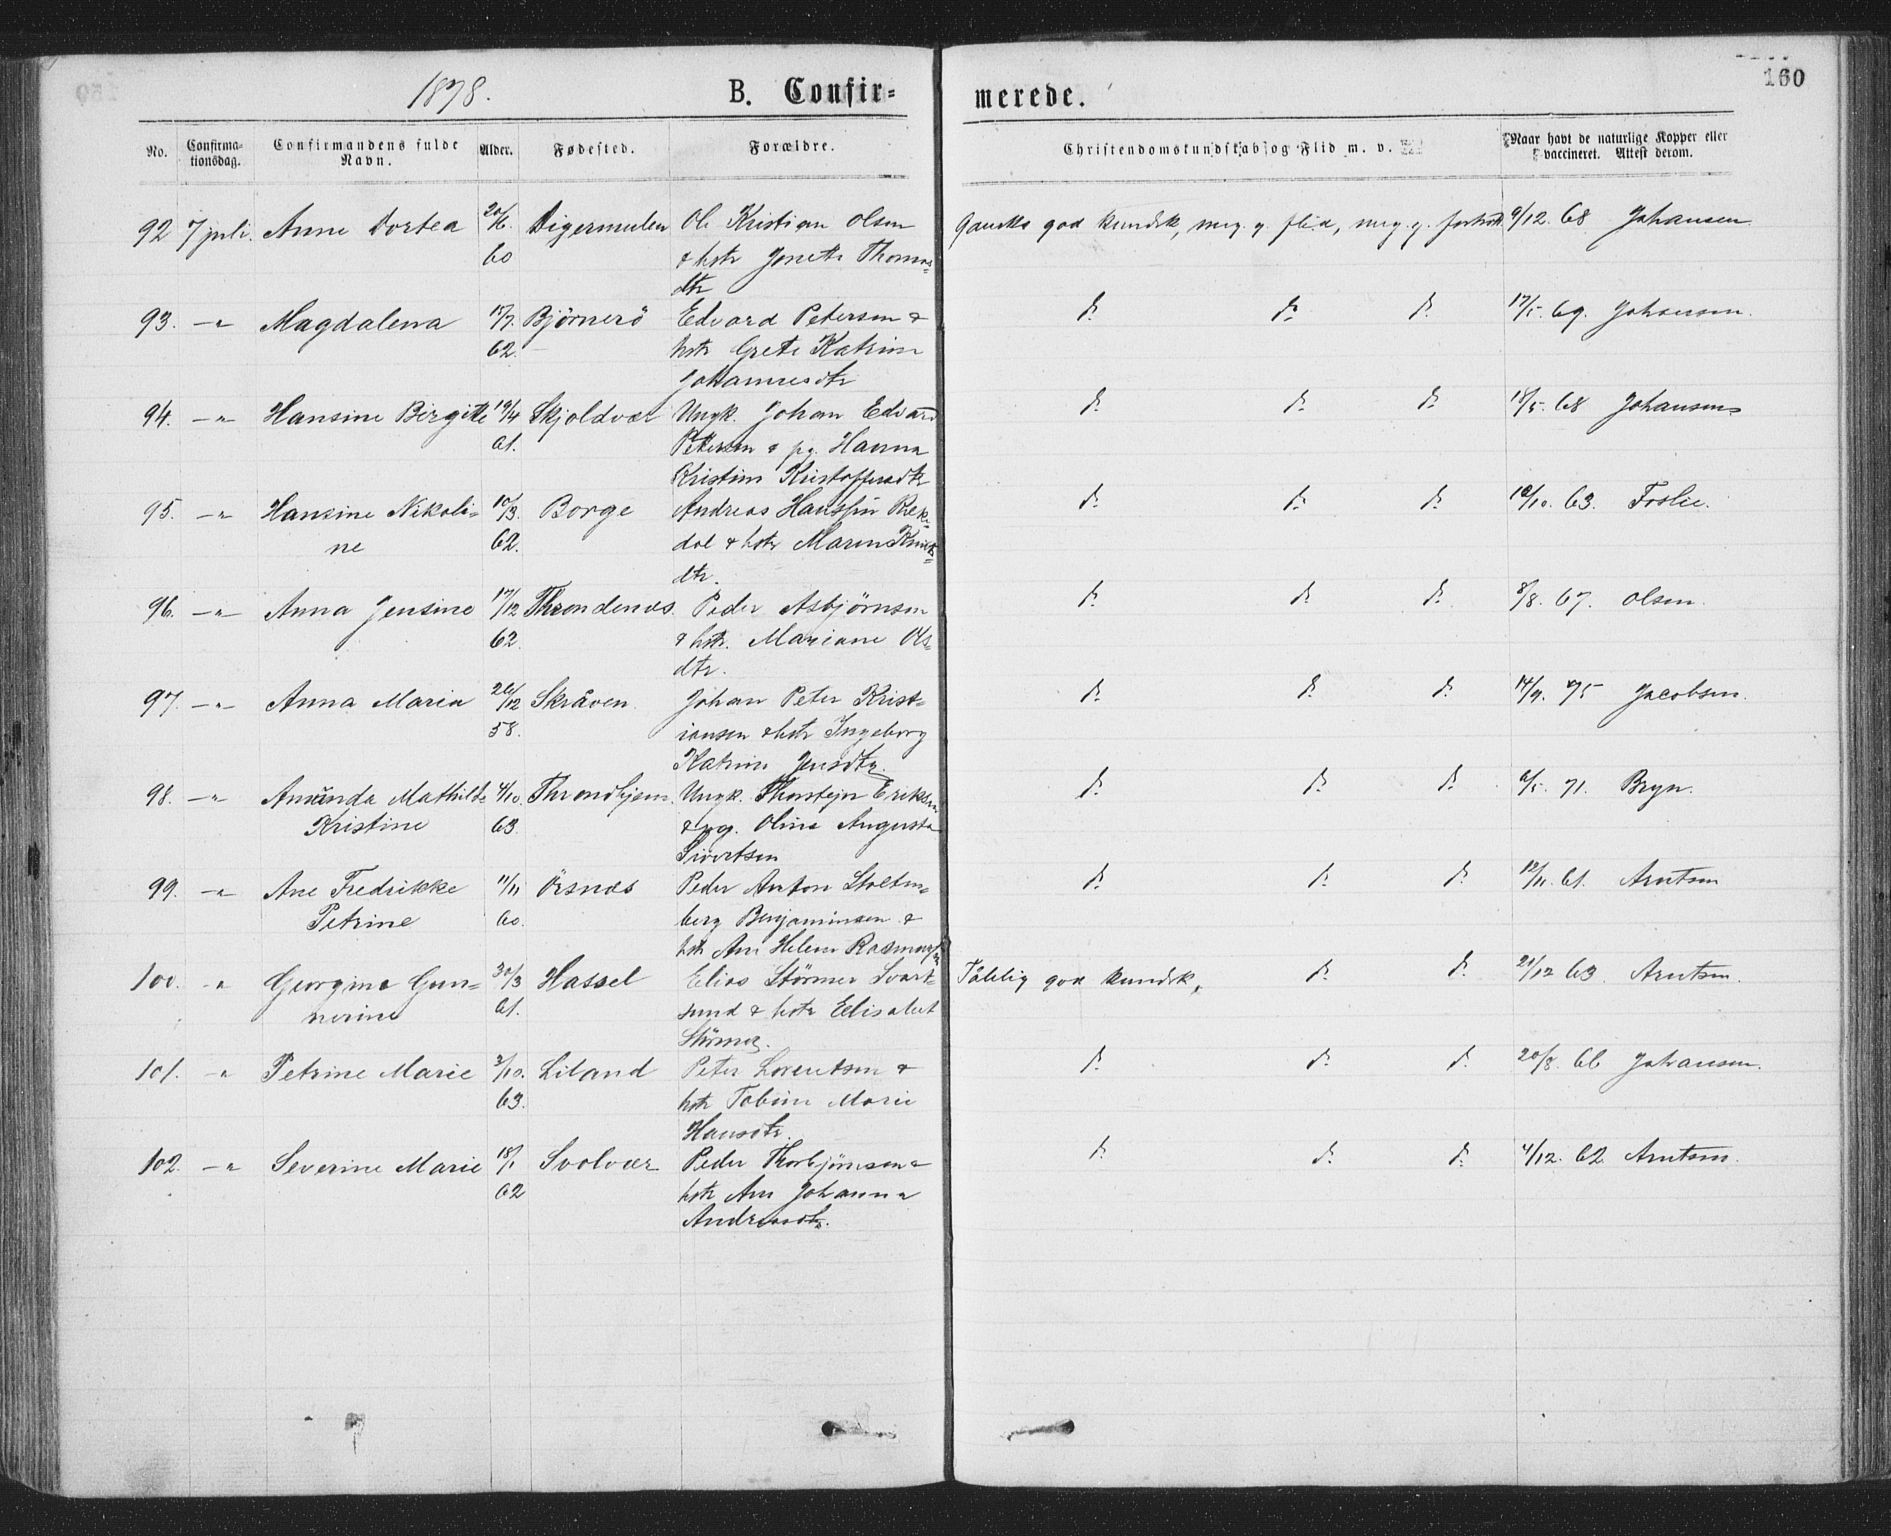 1878. B. Confir- merede. 160
No. Confirma-tionsdag. Confirmandens fulde Navn. Alder. Fødested. Forældre. Christendomskundskab og Flid m. v. Naar havt de naturlige Kopper eller vaccineret. Attest derom.
92 7 juli. Anne Dortea 20/6. Digermulen Ole Kristian Olsen Ganske god kundsk, meg. g. flid, meg. g. forhold 9/12. 68 Johansen
60 & hstr Jonette Thomas=
dtr
93. -"- Magdalena 17/7. Bjørnerö Edvard Petersen & d. d. d. 17/5. 69. Johansen.
62. hstr Grete Katrine
Johannesdtr
94. -"- Hansine Birgitte 19/4 Skjoldvær Ungk. Johan Edvard d. d. d. 18/5. 68 Johansen
61. Petersen & pg. Hanna
Kristine Kristoffersdtr
95. -"- Hansine Nikoli= 10/3. Borge Andreas d. d. d. 10/10. 63. Foslie.
ne 62. dal & hstr Maren Knuts=
dtr.
96. -"- Anna Jensine 17/12 Throndenæs. Peder Asbjørnsen d. d. d. 8/8. 67. Olsen.
62. & hstr. Mariane Ols=
dtr.
97. -"- Anna Maria 26/12 Skråven. Johan Peter Krist= d. d. d. 14/9. 75 Jacobsen.
58. iansen & hstr Ingeborg
Katrine Jensdtr.
98. -"- Amanda Mathilde 4/10. Throndhjem. Ungk. Thorstejn Eriksen d. d. d. 9/5. 71. Bryn.
Kristine 63. & pg. Oline Augusta
Sivertsen
99. -"- Ane Fredrikke 11/11 Örsnæs Peder Anton Stolten= d. d. d. 12/11. 61. Arntsen
Petrine 60. berg Benjaminsen &
hstr Ane Helene Rasmusdtr
100. " Georgine Gun= 30/3 Hassel Elias Störmer Svart= Tålelig god kundsk, d. d. 21/12 63. Arntsen.
nerine 61. sund & hstr Eelisabet
Störmer.
101. -"- Petrine Marie 3/10. Liland Peter Lorentsen & d. d. d. 20/8. 66 Johansen.
63. hstr Tobine Marie
Hansdtr.
102. -"- Severine Marie 18/1 Svolvær Peder Thorbjørnsen & d. d. d. 4/12. 62 Arntsen.
62 hstr Ane Johanna
Andreasdtr.